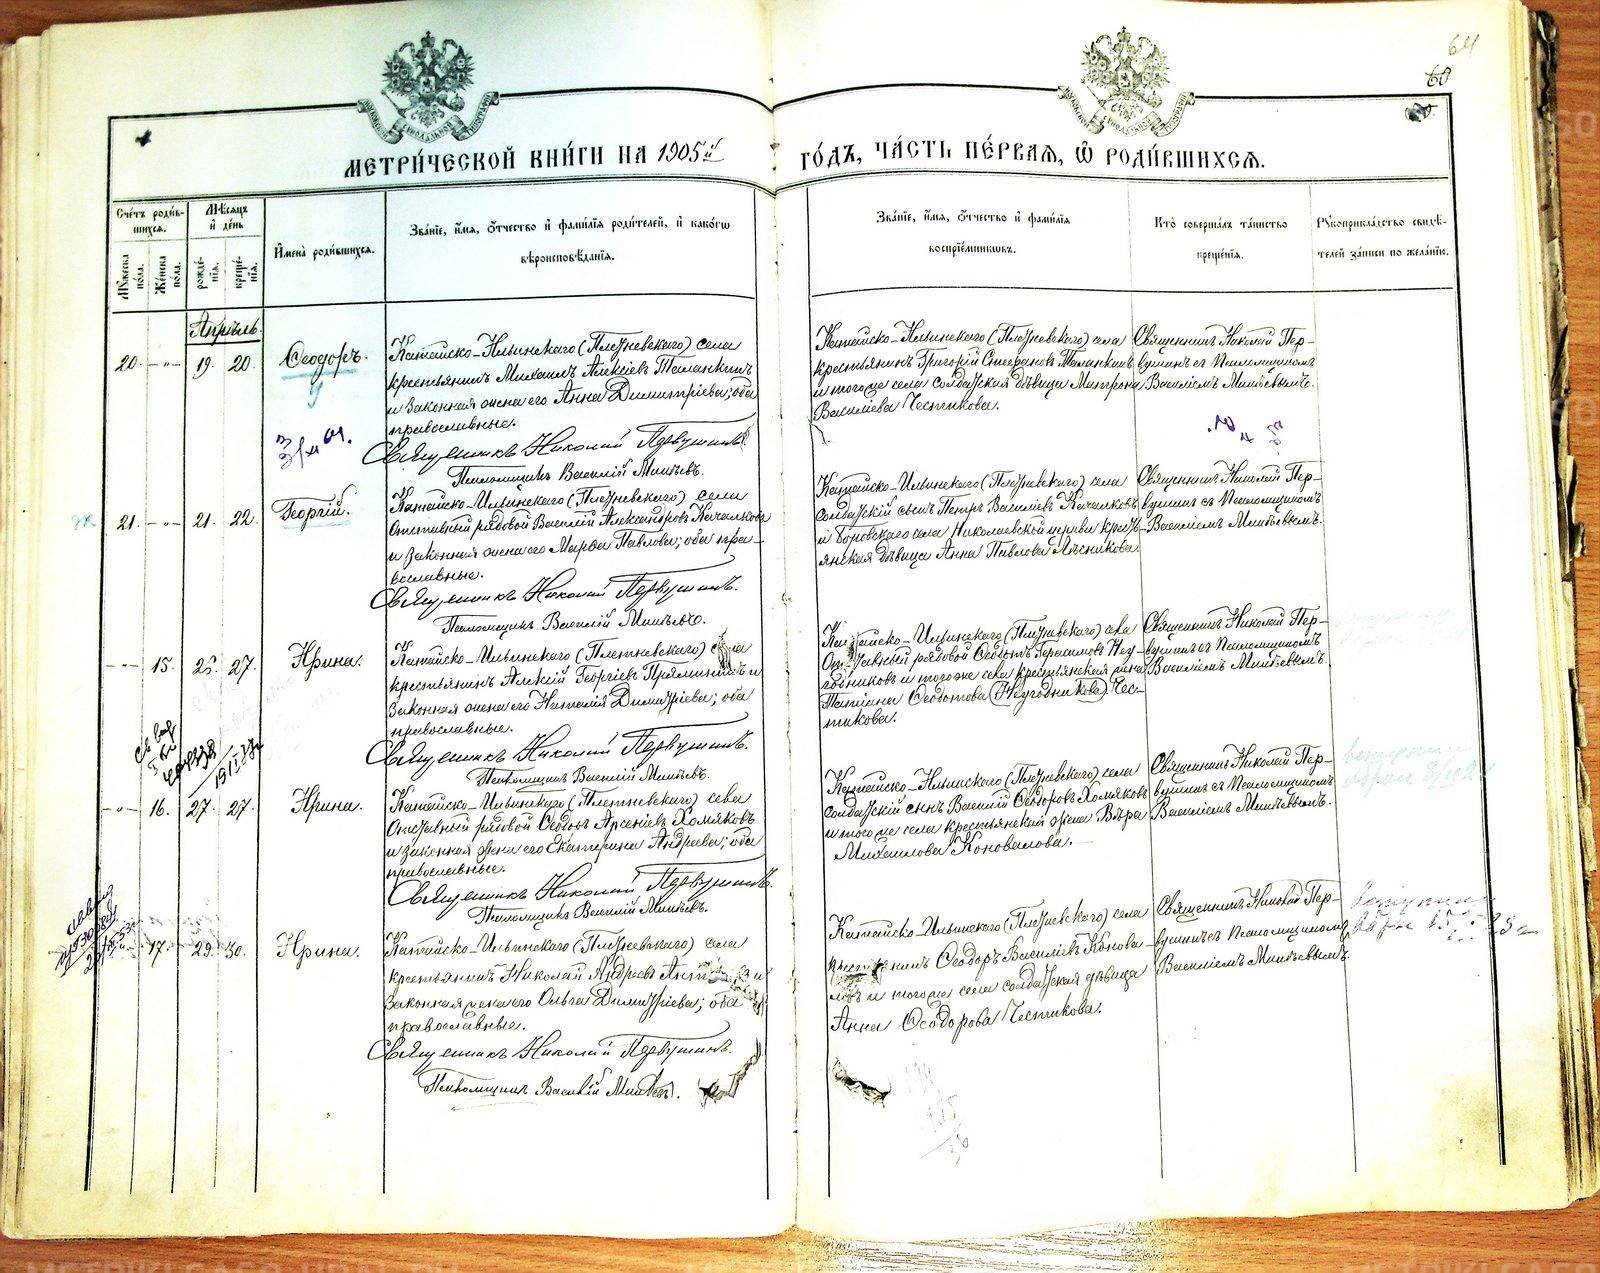 64
60
МЕТРИ́ЧЕСКОЙ КНИ́ГИ НА 1905й
ГО́ДЪ, ЧА́СТЬ ПЕ́РВАѦ, Ѡ҆ РОДИ́ВШИХСѦ.
Сче́тъ роди́в-
шихсѧ.
Мꙋ́жеска по́ла.
Же́нска по́ла.
Мѣ́сѧцъ
и҆ де́нь
рожде́-
нїѧ.
креще́-
нїѧ.
И҆мена̀ роди́вшихсѧ.
Зва́нїе, и҆́мѧ, ѻ҆́тчество и҆ фами́лїѧ роди́телей, и҆ како́гѡ
вѣроисповѣ́данїѧ.
Зва́нїе, и҆́мѧ, ѻ҆́тчество и҆ фами́лїѧ
воспрїе́мникѡвъ.
Кто̀ соверша́лъ та́инство
креще́нїѧ.
Рꙋкоприкла́дство свидѣ́-
телей за́писи по жела́нїю.
Апрѣль
20. - „ - 19. 20. Ѳеодоръ.
Катайско-Ильинскаго (Плетневскаго) села
крестьянинъ Михаилъ Алексіевъ Таланкинъ
и законная жена его Анна Димитріева; оба
православные.
Священникъ Николай Первушинъ.
Псаломщикъ Василій Михѣевъ.
Катайско-Ильинскаго (Плетневскаго) села
крестьянинъ Григорій Стефановъ Таланкинъ
и того же села солдатская дѣвица Матрона
Василіева Честикова.
Священникъ Николай Пер-
вушинъ съ Псаломщикомъ
Василіемъ Михѣевымъ.
21. - „ - 21. 22. Георгій.
Катайско-Ильинскаго (Плетневскаго) села
Отставный рядовой Василій Александровъ Качалковъ
и законная жена его Марѳа Павлова; оба пра-
вославные.
Священникъ Николай Первушинъ.
Псаломщикъ Василій Михѣевъ.
Катайско-Ильинскаго (Плетневскаго) села
солдатскій сынъ Петръ Василіевъ Качалковъ
и Боровскаго села Николаевской церкви кресть-
янская дѣвица Анна Павлова Лѣсникова.
Священникъ Николай Пер-
вушинъ съ Псаломщикомъ
Василіемъ Михѣевымъ.
- „ - 15. 25. 27. Ирина.
Катайско-Ильинскаго (Плетневскаго) села
крестьянинъ Алексій Георгіевъ и
законная жена его Наталія Димитріева; оба
православные.
Священникъ Николай Первушинъ.
Псаломщикъ Василій Михѣевъ.
Катайско-Ильинскаго (Плетневскаго) села
Отставный рядовой Ѳеодотъ Герасимовъ Не-
годниковъ и того же села крестьянская жена
Татіана Ѳеодотова (Негодникова) Чес-
тикова.
Священникъ Николай Пер-
вушинъ съ Псаломщикомъ
Василіемъ Михѣевымъ.
- „ - 16. 27. 27. Ирина.
Катайско-Ильинскаго (Плетневскаго) села
Отставный рядовой Ѳеодоръ Арсеніевъ Хомяковъ
и законная жена его Екатерина Андреева; оба
православные.
Священникъ Николай Первушинъ.
Псаломщикъ Василій Михѣевъ.
Катайско-Ильинскаго (Плетневскаго) села
солдатскій сынъ Василій Ѳеодоровъ Хомяковъ
и того же села крестьянская жена Вѣра
Михаилова Коновалова.
Священникъ Николай Пер-
вушинъ съ Псаломщикомъ
Василіемъ Михѣевымъ.
„ 17. 29. 30. Ирина.
Катайско-Ильинскаго (Плетневскаго) села
крестьянинъ Николай Андреевъ и
законная жена его Ольга Димитріева; оба
православные.
Священникъ Николай Первушинъ.
Псаломщикъ Василій Михѣевъ.
Катайско-Ильинскаго (Плетневскаго) села
крестьянинъ Ѳеодоръ Василіевъ Конова-
ловъ и того же села солдатская дѣвица
Анна Ѳеодорова Честикова.
Священникъ Николай Пер-
вушинъ съ Псаломщикомъ
Василіемъ Михѣевымъ.